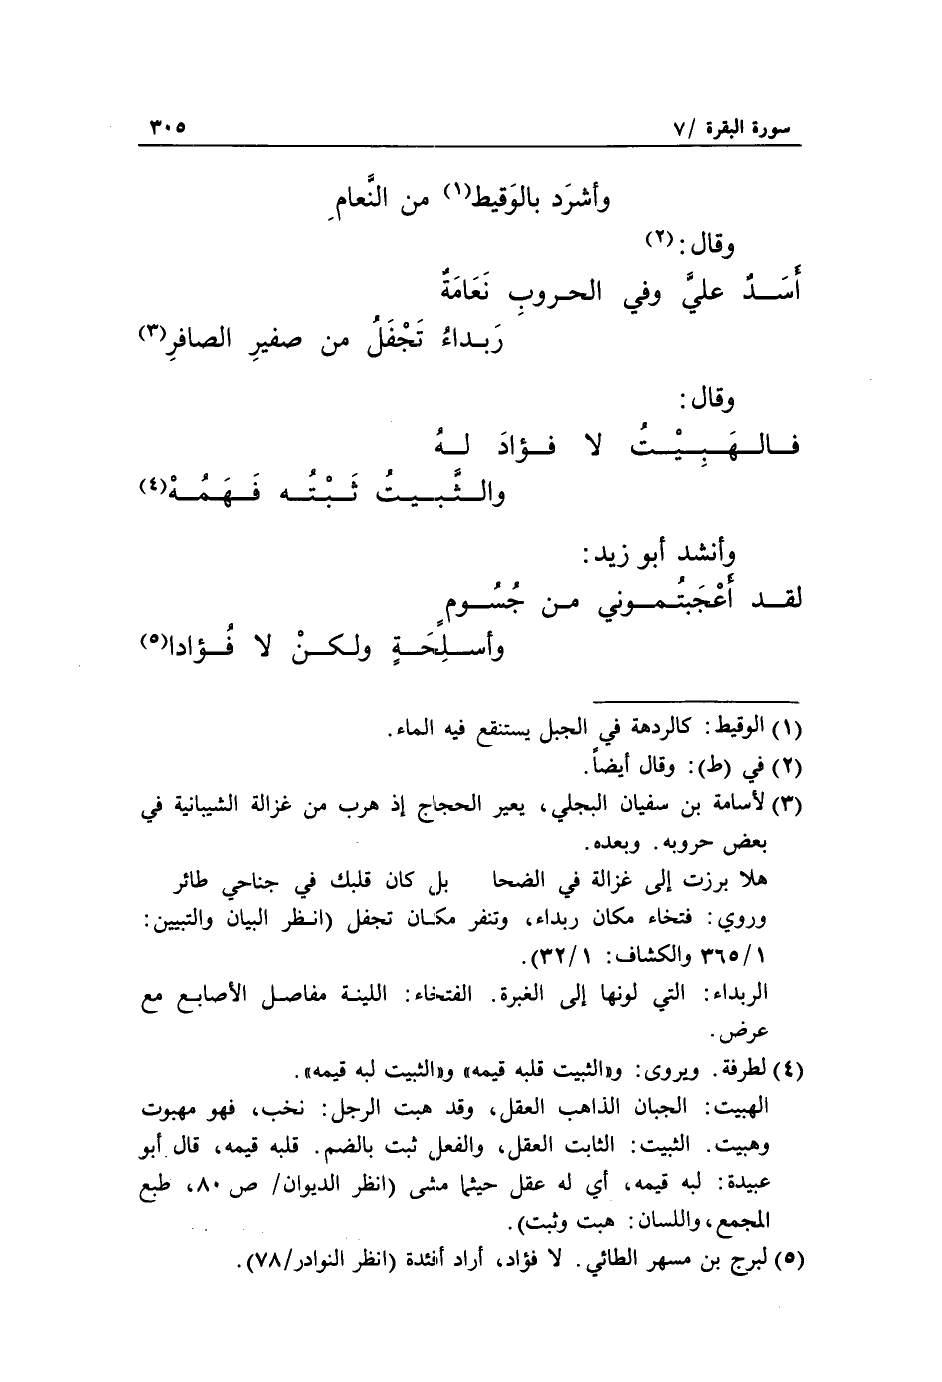 سورة البقرة /٧ ٣٠٥
وأشرَد بالوَقيط(١) من النَّعامِ
وقال:(٢)
أَسَــدٌ عليَّ وفي الحــروبِ نَعَامَةٌ
رَبــداءُ تَجْفَلُ من صفيرِ الصافرِ(٣)
وقال:
فــالــهَــبِــيْــتُ لا فــؤادَ لــهُ
والــثَّــبــيــتُ ثَــبْــتُــه فَــهَــمُــهْ(٤)
وأنشد أبو زيد:
لقــد أَعْجَبتُــمــوني مــن جُسُــومٍ
وأســلِحَــةٍ ولكــنْ لا فُــؤادا(٥)
(١) الوقيط: كالردهة في الجبل يستنقع فيه الماء.
(٢) في (ط): وقال أيضاً.
(٣) لأسامة بن سفيان البجلي، يعير الحجاج إذ هرب من غزالة الشيبانية في
بعض حروبه. وبعده.
هلا برزت إلى غزالة في الضحا بل كان قلبك في جناحي طائر
وروي: فتخاء مكان ربداء، وتنفر مكان تجفل (انظر البيان والتبيين:
٣٦٥/١ والكشاف: ٣٢/١).
الربداء: التي لونها إلى الغبرة. الفتخاء: اللينة مفاصل الأصابع مع
عرض.
(٤) لطرفة. ويروى: و«الثبيت قلبه قيمه» و«الثبيت لبه قيمه».
الهبيت: الجبان الذاهب العقل، وقد هبت الرجل: نخب، فهو مهبوت
وهبيت. الثبيت: الثابت العقل، والفعل ثبت بالضم. قلبه قيمه، قال أبو
عبيدة: لبه قيمه، أي له عقل حيثما مشى (انظر الديوان/ ص ٨٠، طبع
المجمع، واللسان: هبت وثبت).
(٥) لبرج بن مسهر الطائي. لا فؤاد، أراد أفئدة (انظر النوادر/٧٨).